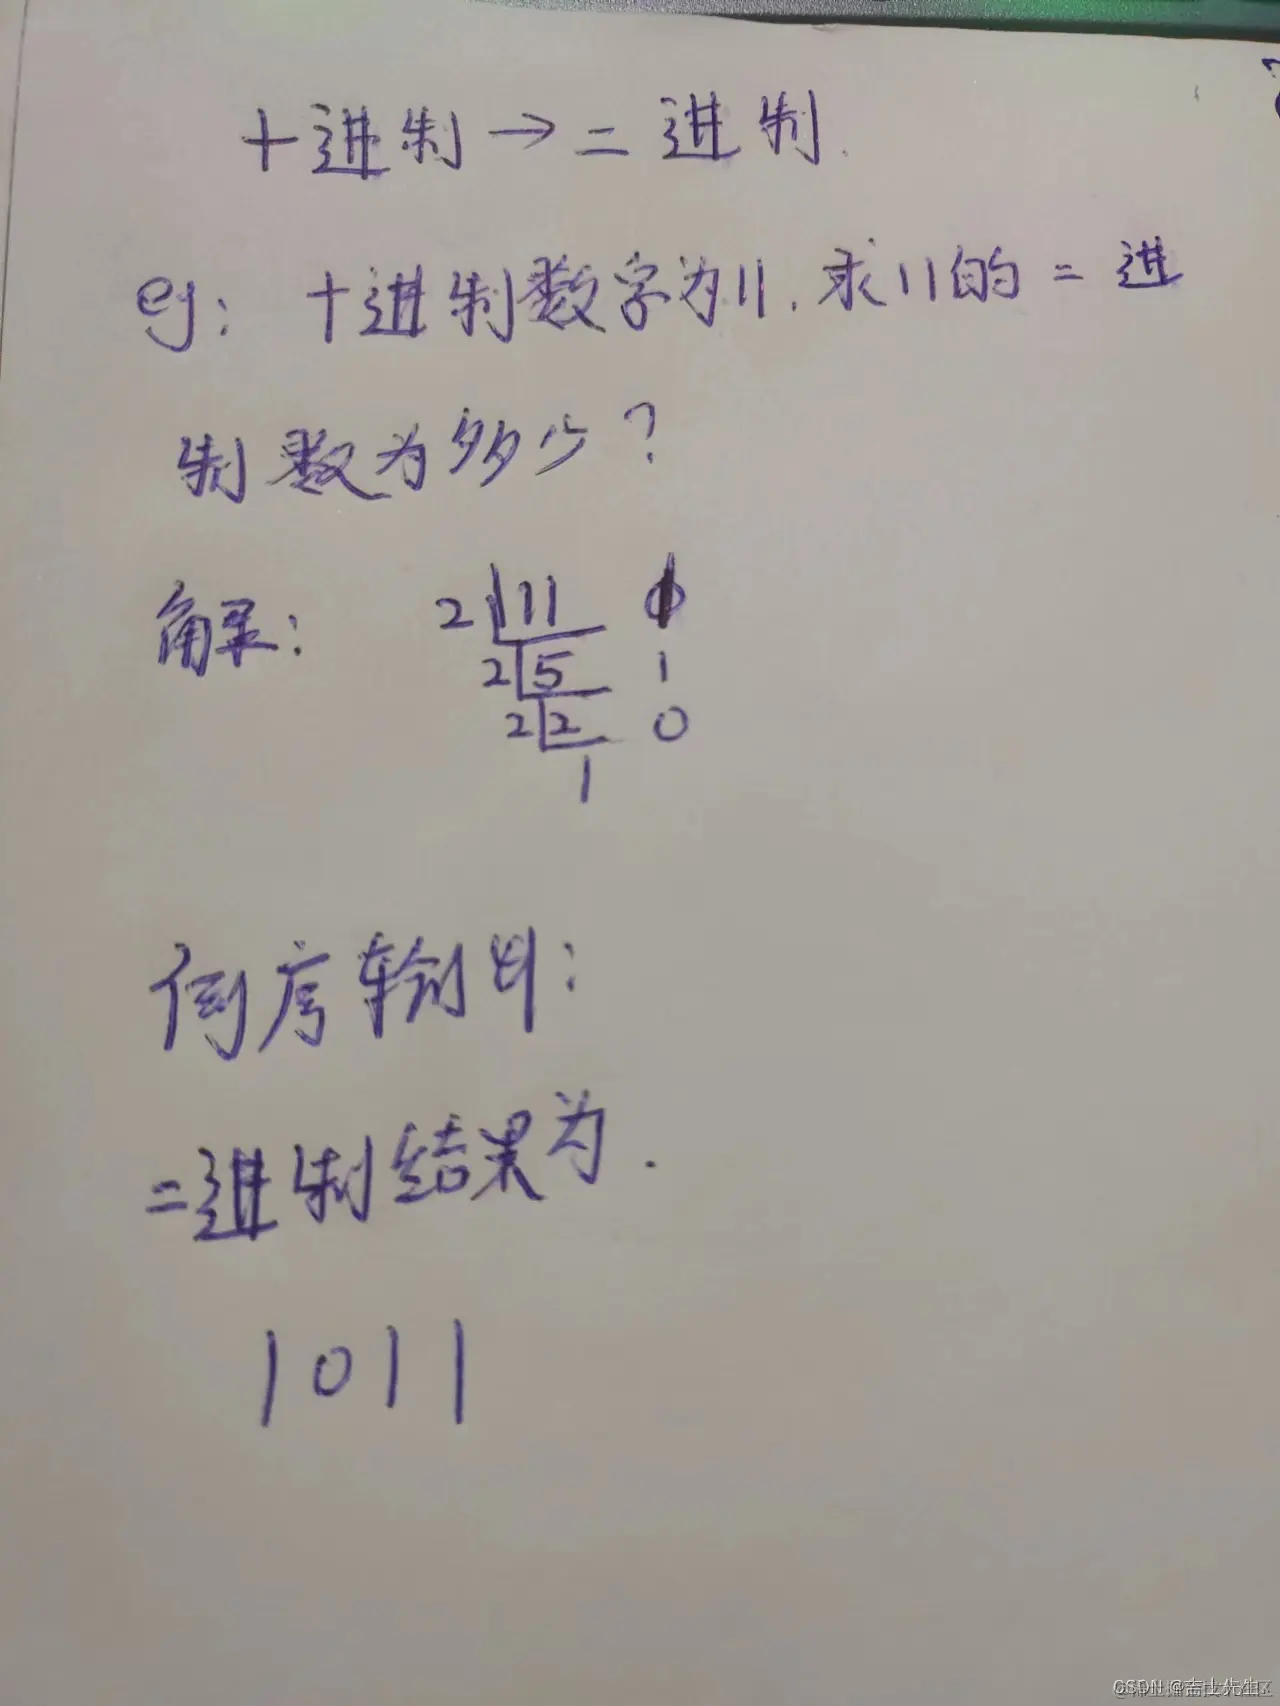 十进制→二进制.
eg: 十进制数字为11. 求11的二进
制数为多少?
解: 2 11 1
2 5 1
2 2 0
1
倒序输出:
二进制结果为.
1011
CSDN @吉士先生